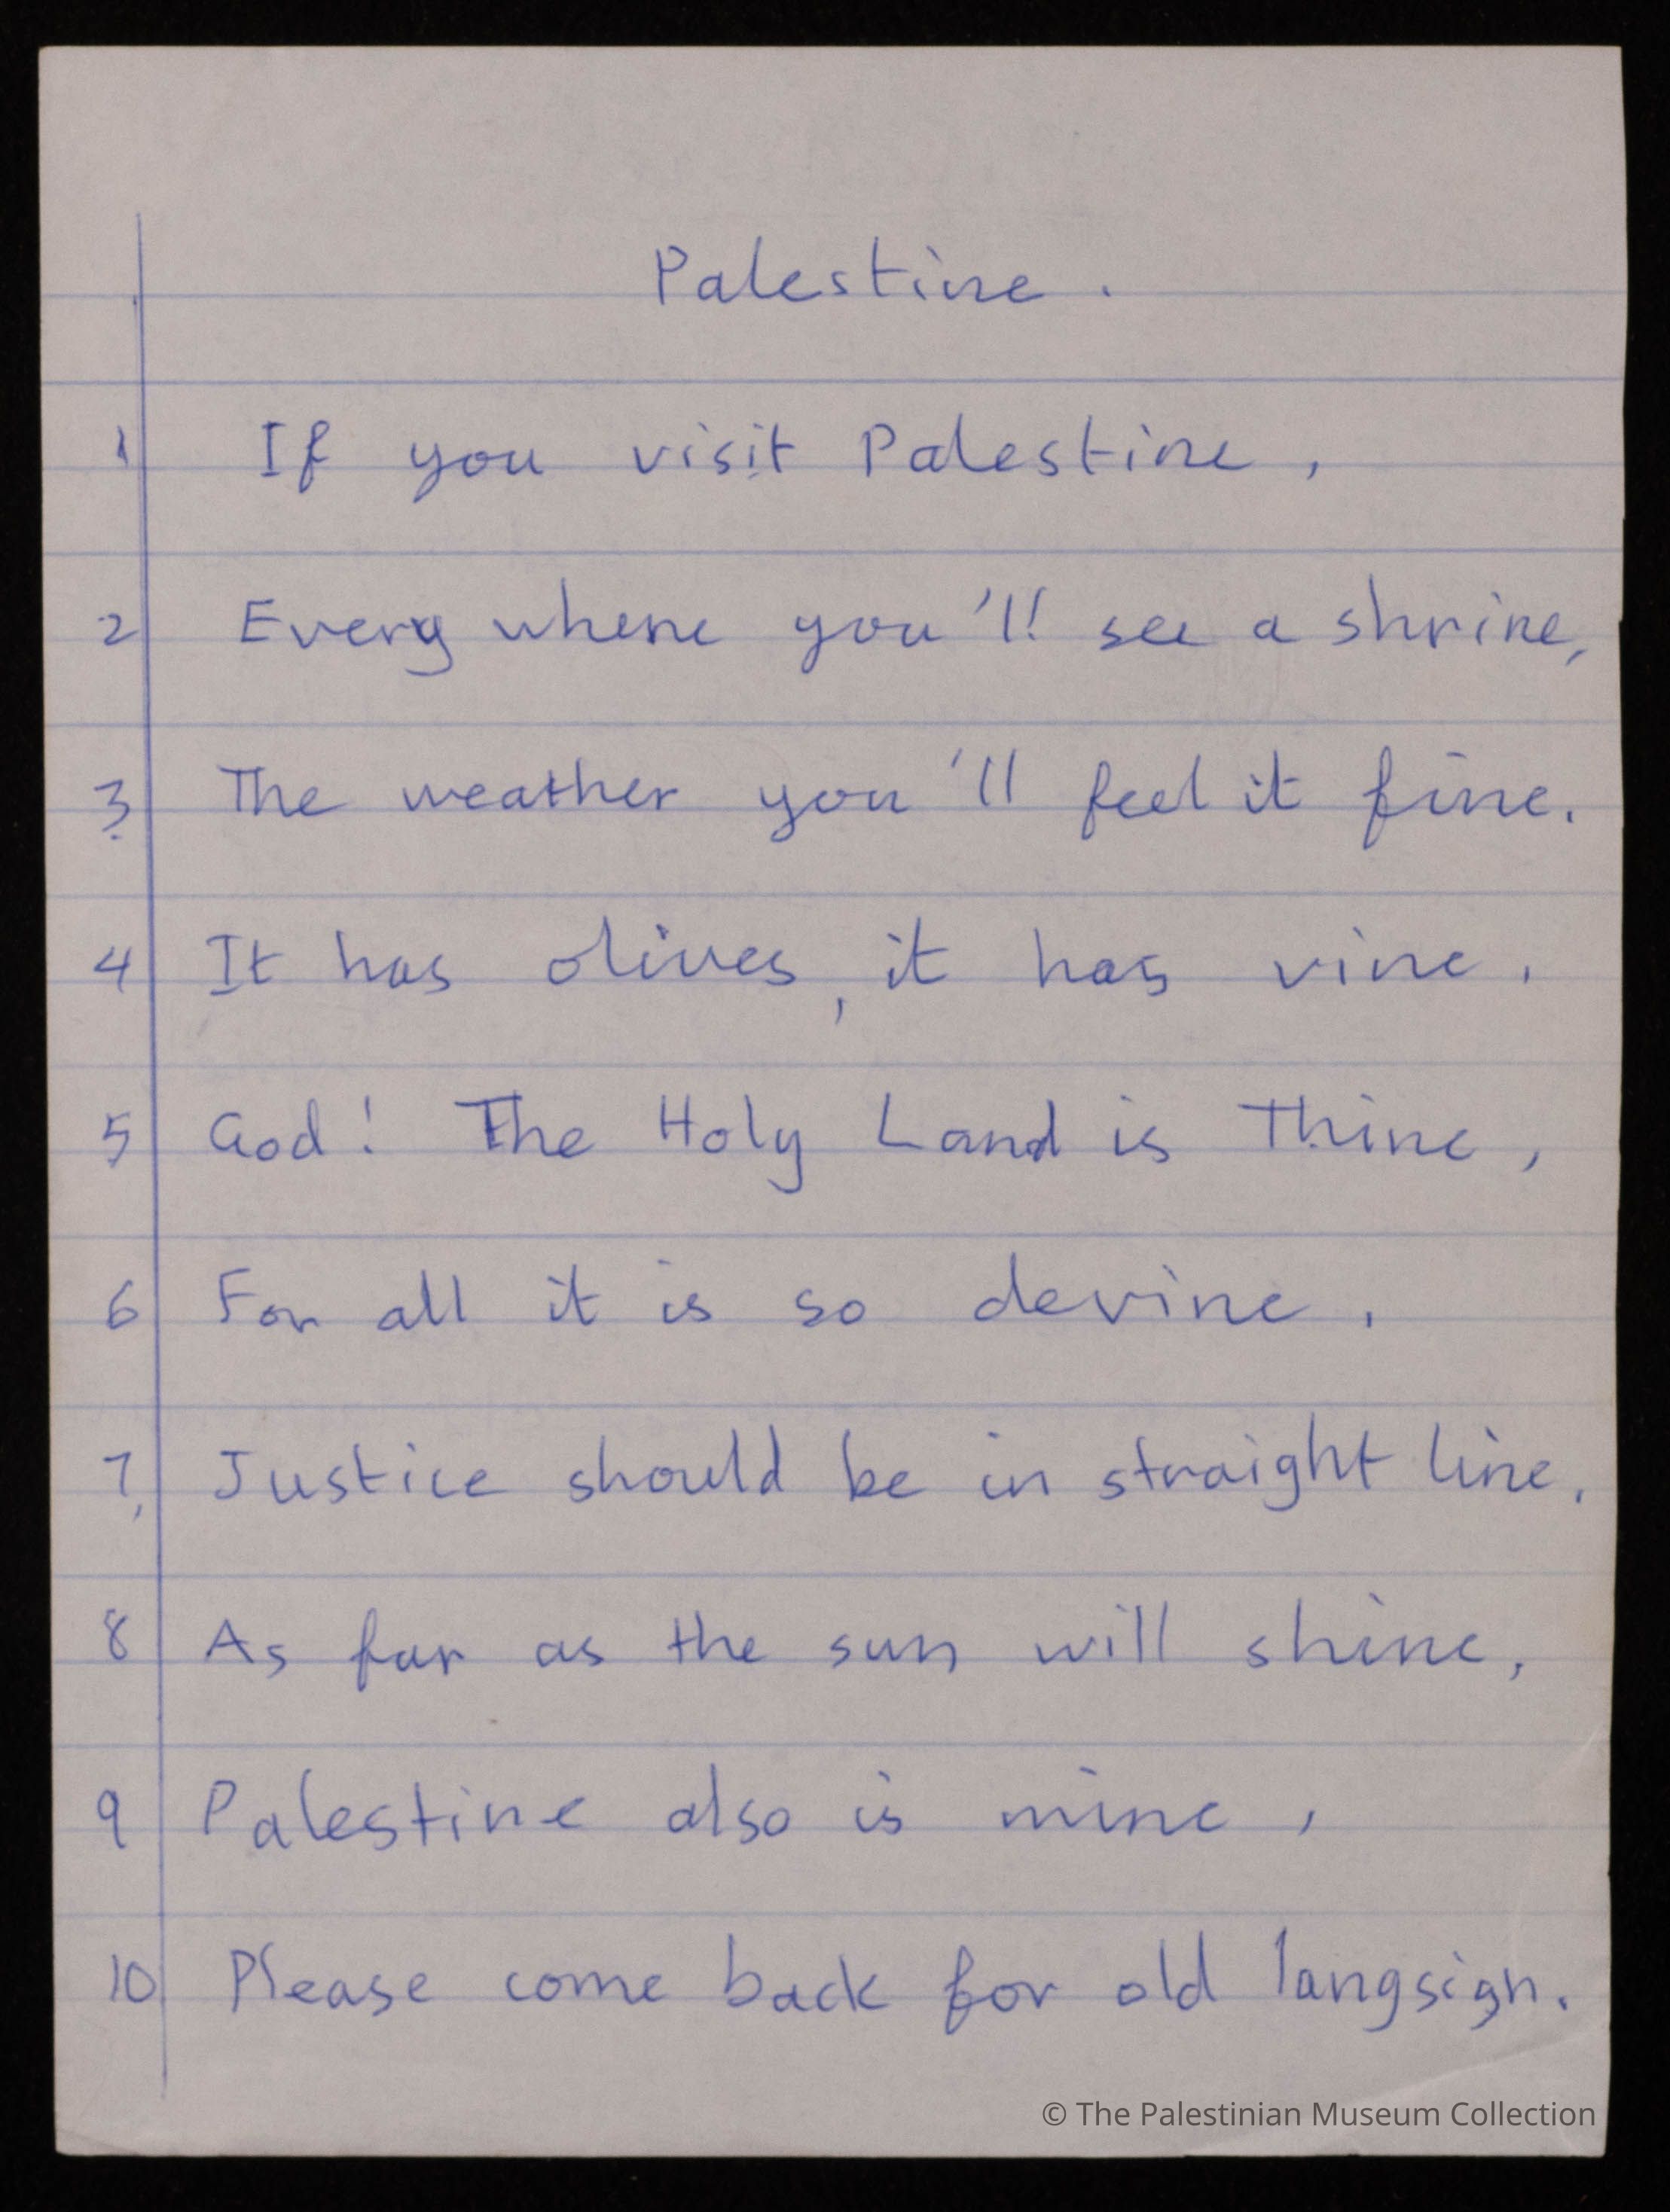 Palestine.
1 If you visit Palestine,
2 Every where you'll see a shrine,
3 The weather you'll feel it fine.
4 It has olives, it has vine.
5 God! The Holy Land is Thine,
6 For all it is so devine.
7, Justice should be in straight line,
8 As far as the sun will shine,
9 Palestine also is mine,
10 Please come back for old langsign.
© The Palestinian Museum Collection